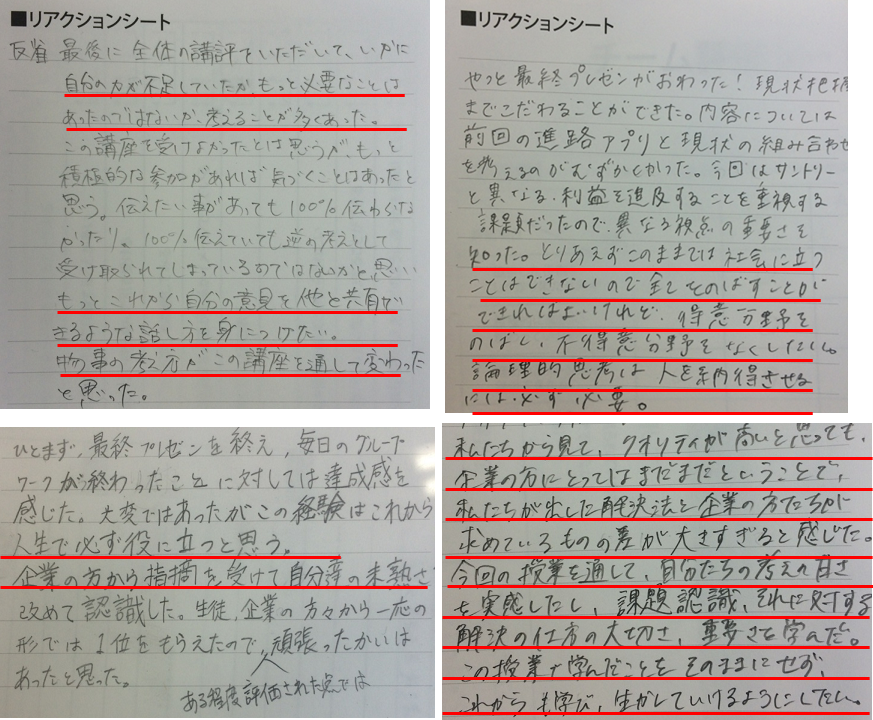 ■リアクションシート
反省 最後に 全体の講評をいただいて、いかに
自分の力が不足していたか、もっと必要なことは
あったのではないか、考えることが多くあった。
この講座を受けなかったとは思うが、もっと
積極的な参加があれば気づくことはあったと
思う。伝えたい事があっても100%伝わらな
かったり、100%伝えていても逆の考えとして
受け取られてしまっているのではないかと思い
もっとこれから自分の意見を他と共有で
きるような話し方を身につけたい。
物事の考え方がこの講座を通して変わった
と思った。
■リアクションシート
やっと最終プレゼンがおわった！現状把握
までこだわることができた。内容については
前回の進路アプリと現状の組み合わせ
を考えるのがむずかしかった。今回はサントリー
と異なる、利益を追及することを重視する
課題だったので、異なる視点の重要さを
知った。とりあえずこのままでは社会に立つ
ことはできないので全てのばすことが
できればよいけれど、得意分野を
のばし、不得意分野をなくしたい。
論理的思考は人を納得させる
には必ず必要。
ひとまず、最終プレゼンを終え、毎日のグループ
ワークが終わったことに対しては達成感を
感じた。大変ではあったがこの経験はこれから
人生で必ず役に立つと思う。
企業の方から指摘を受けて自分達の未熟さ
改めて認識した。生徒、企業の方々から一応の
形では1位をもらえたので、頑張ったかいは
あったと思った。
ある程度評価された点では
私たちから見て、クオリティが高いと思っても、
企業の方にとってはまだまだということで、
私たちが出した解決法と企業の方たちが
求めているものの差が大きすぎると感じた。
今回の授業を通して、自分たちの考えの甘さ
を実感したし、課題認識、それに対する
解決の仕方の大切さ、重要さを学んだ。
この授業で学んだことをそのままにせず、
これからも学び、生かしていけるようにしたい。